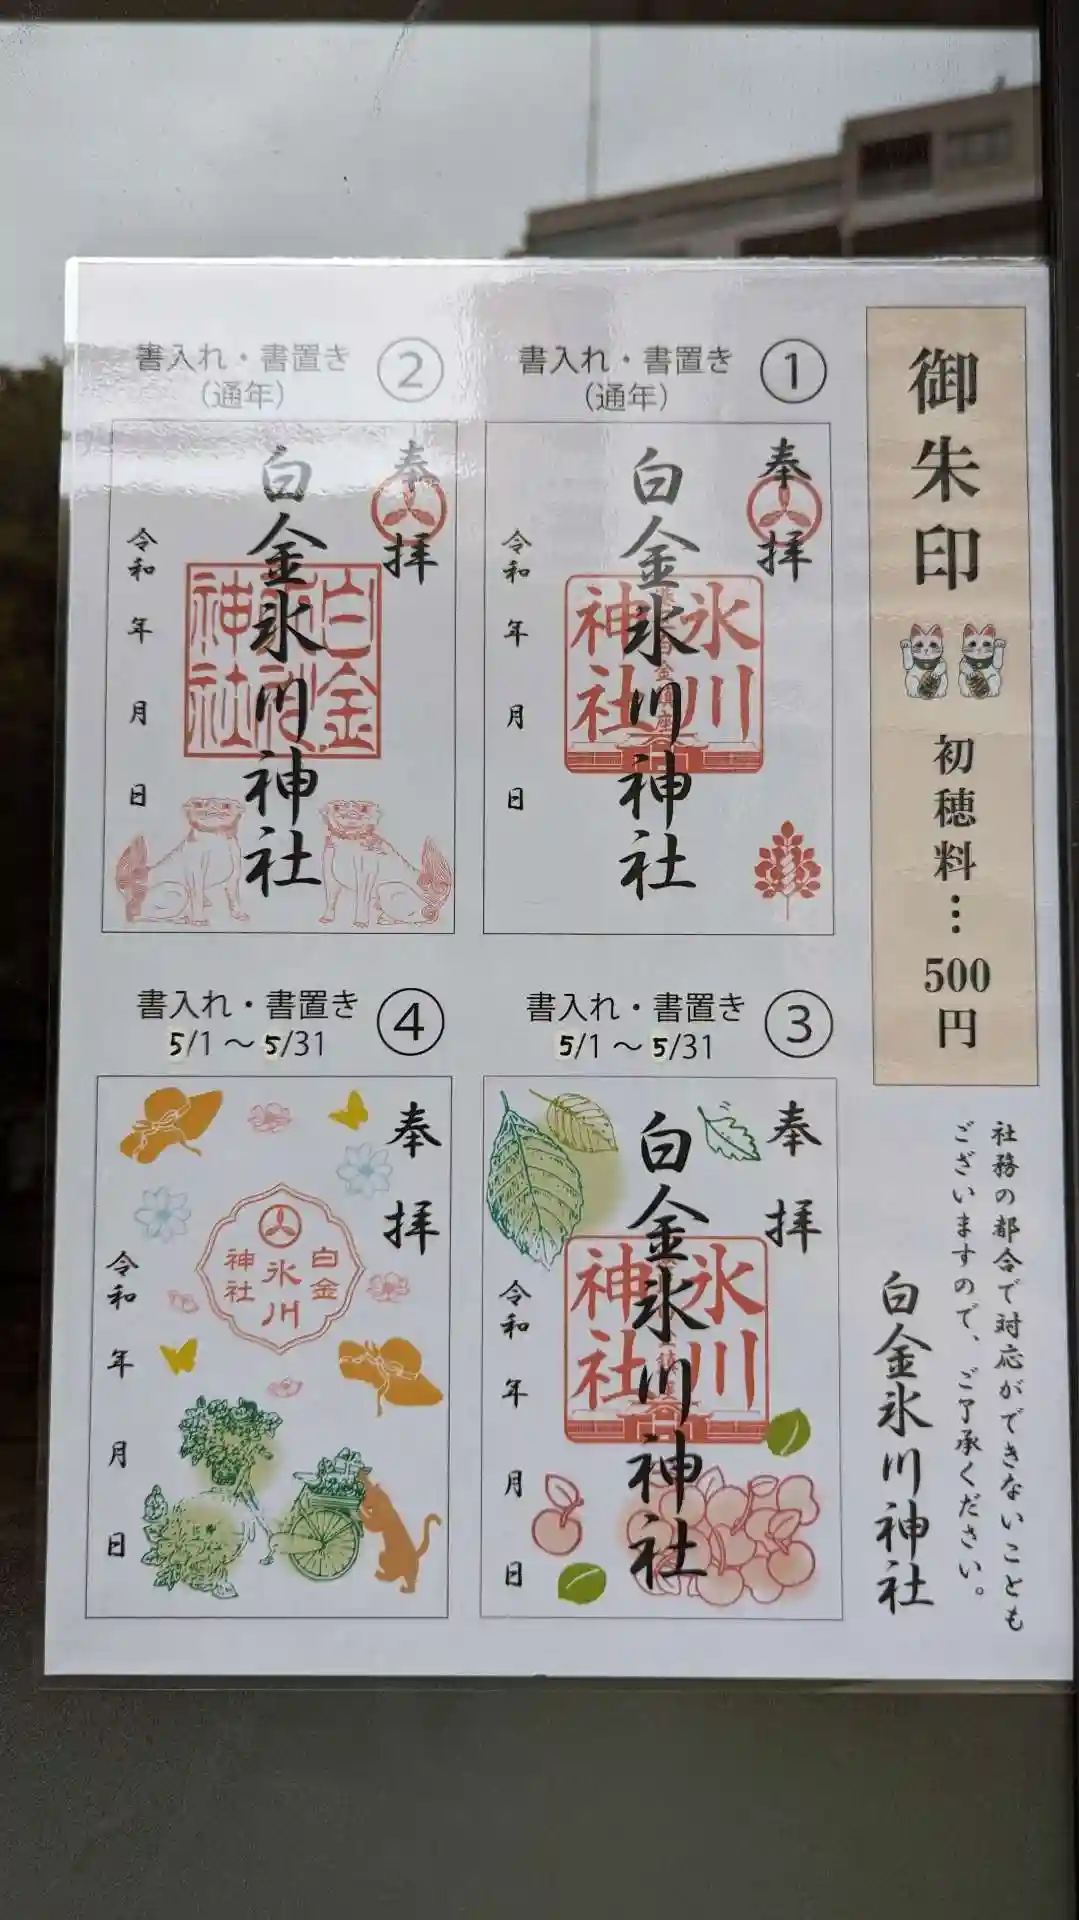 御朱印
初穂料…500円
社務の都合で対応ができないことも
ございますので、ご了承ください。
白金氷川神社
①
書入れ・書置き
(通年)
奉拝
白金氷川神社
氷川
神社
令和 年 月 日
②
書入れ・書置き
(通年)
奉拝
白金氷川神社
白金
神社
令和 年 月 日
③
書入れ・書置き
5/1〜5/31
奉拝
白金氷川神社
氷川
神社
令和 年 月 日
④
書入れ・書置き
5/1〜5/31
奉拝
白金
氷川
神社
令和 年 月 日